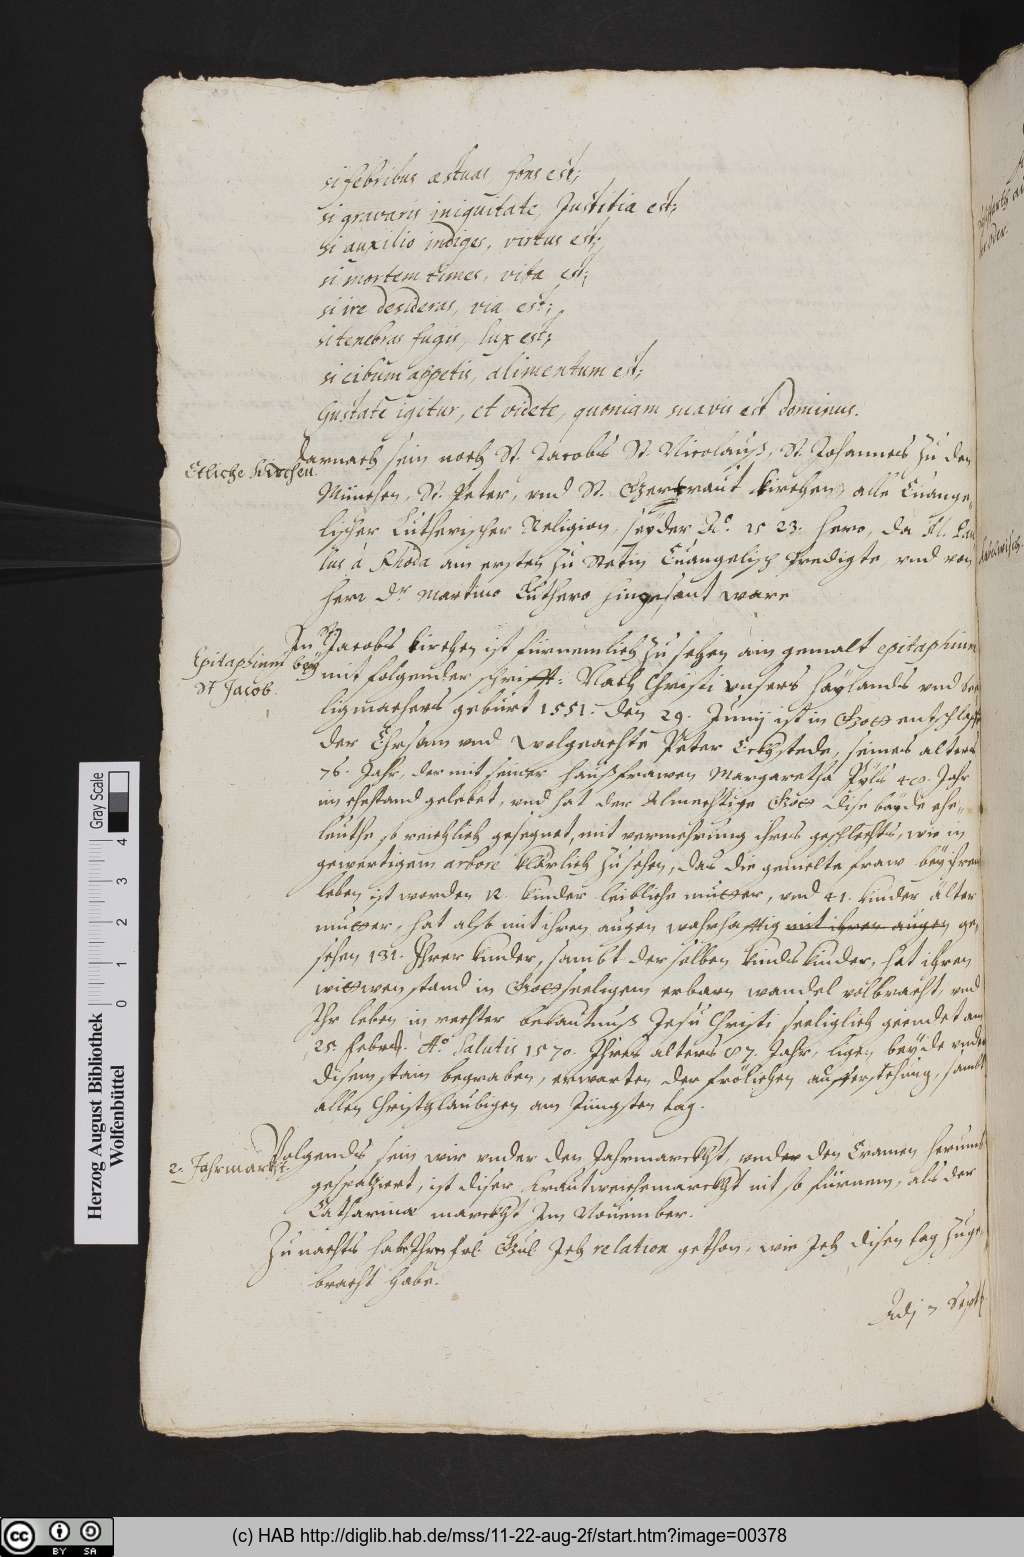 si febribus æstuas, fons est;
si gravaris iniquitate, Justitia est;
si auxilio indiges, virtus est;
si mortem times, vita est;
si ire desideras, via est;
si tenebras fugis, lux est;
si cibum appetis, alimentum est;
Gustate igitur, et videte, quoniam suavis est dominus.
Etliche Kirchen.
Darnach sein noch St. Jacobs St. Nicolauß, St. Johannes zu den
München, St. Peter, vnd St. Gertraut kirchen, alle Euange-
lischer Lutherischer Religion, seyder A.º 1523. hero, da M. Pau
lus à Rhoda am ersten zu Stetin Euangelisch predigte, vnd von
herr Dr Martino Luthero hingesant ware
Epitaphium bey
St Jacob.
In St Jacobs kirchen ist fürnemlich zu sehen ain gemalt epitaphium
mit folgender schrifft: Nach Christi vnsers haylands vnd se-
ligmachers geburt 1551. den 29. Junij ist in Gott entschlaffen
der Ehrsam vnd wolgeachte Peter seines alters
76. Jahr, der mit seiner haußfrawen Margaretha Jahr
im ehestand gelebet, vnd hat der Almechtige Gott dise beyde ehe-
leuthe so reichlich gesegnet, mit vermehrung ihres geschlechts, wie in
gegenwertigem arbore klärlich zu sehen, das die gemelte fraw bey ihrem
leben ist worden 12. kinder leibliche mutter, vnd 41. kinder älter
mutter, hat also mit ihren augen warhafftig mit ihren augen ge-
sehen 131. Ihrer kinder, sambt derselben kindskinder, hat ihren
wittwen stand in Gottseeligem erbarn wandel volbracht, vnd
Ihr leben in rechter bekantnuß Jesu Christi seeliglich geendet am
25. Febru. A.º Salutis 1570. Ihres alters 87. Jahr, ligen beyde vnder
disem stain begraben, erwarten der frölichen aufferstehung, sambt
allen Christglaubigen am Jüngsten tag.
2. Jahrmarkt.
Volgends sein wir vnder den Jahrmarckht, vnder den Cramen herumb
gespatziert, ist diser krautweichemarckht nit so fürnem, als der
Catharinæ marckht Im Nouember.
Zu nachts hab Ihrer frl. Gnl. Ich relation gethon, wie Ich disen tag zuge-
bracht habe.
Adj 7 Septem
Herzog August Bibliothek
Wolfenbüttel
Gray Scale
0 1 2 3 4
cc BY SA
(c) HAB http://diglib.hab.de/mss/11-22-aug-2f/start.htm?image=00378